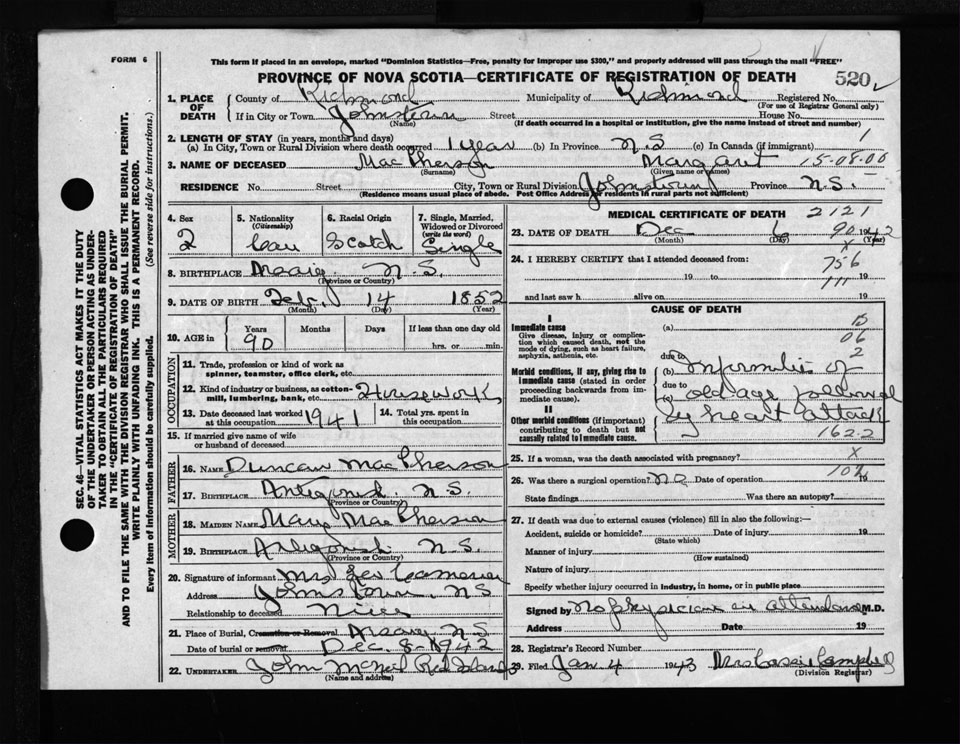 FORM 6
This form if placed in an envelope, marked "Dominion Statistics—Free, penalty for improper use $300," and properly addressed will pass through the mail "FREE"
PROVINCE OF NOVA SCOTIA—CERTIFICATE OF REGISTRATION OF DEATH 520
1. PLACE OF DEATH County of Richmond Municipality of Richmond Registered No. (For use of Registrar General only)
If in City or Town Johnstown (Name) Street House No.
(If death occurred in a hospital or institution, give the name instead of street and number)
2. LENGTH OF STAY (in years, months and days)
(a) In City, Town or Rural Division where death occurred 1 year (b) In Province N.S (c) In Canada (if immigrant) 1
3. NAME OF DECEASED MacPherson (Surname) Margaret (Given name or names) 15-08-00
RESIDENCE No. Street City, Town or Rural Division Johnstown Province N.S.
(Residence means usual place of abode. Post Office Address for residents in rural parts not sufficient)
4. Sex 2
5. Nationality (Citizenship) Can
6. Racial Origin Scotch
7. Single, Married, Widowed or Divorced (write the word) Single
8. BIRTHPLACE N.S. (Province or Country)
9. DATE OF BIRTH Feb. (Month) 14 (Day) 1852 (Year)
10. AGE in Years 90 Months Days If less than one day old hrs. or min.
OCCUPATION
11. Trade, profession or kind of work as spinner, teamster, office clerk, etc.
12. Kind of industry or business, as cotton-mill, lumbering, bank, etc. Housework
13. Date deceased last worked at this occupation 1941 14. Total yrs. spent in this occupation
15. If married give name of wife or husband of deceased
FATHER
16. NAME Duncan MacPherson
17. BIRTHPLACE Antigonish N.S.
MOTHER
18. MAIDEN NAME Mary MacPherson
19. BIRTHPLACE Antigonish N.S. (Province or Country)
20. Signature of informant Mrs Cameron
Address Johnstown, N.S
Relationship to deceased Niece
21. Place of Burial, Cremation or Removal N.S
Date of burial or removal Dec. 8-1942
22. UNDERTAKER John McNeil Red Islands (Name and address)
MEDICAL CERTIFICATE OF DEATH 2121
23. DATE OF DEATH Dec (Month) 6 (Day) 1942 (Year)
90
x
24. I HEREBY CERTIFY that I attended deceased from:
756
19 to 19
111
and last saw h alive on 19
CAUSE OF DEATH
I
Immediate cause (a)
Give disease, injury or complication which caused death, not the mode of dying, such as heart failure, asphyxia, asthenia, etc.
06
2
due to
Morbid conditions, if any, giving rise to immediate cause (stated in order proceeding backwards from immediate cause).
(b) Infirmities of
due to
(c) old age followed
II
Other morbid conditions (if important) contributing to death but not causally related to immediate cause.
by heart attack
162-2
25. If a woman, was the death associated with pregnancy? x
26. Was there a surgical operation? no Date of operation 19
State findings Was there an autopsy?
27. If death was due to external causes (violence) fill in also the following:—
Accident, suicide or homicide? (State which) Date of injury 19
Manner of injury (How sustained)
Nature of injury
Specify whether injury occurred in industry, in home, or in public place
Signed by No physician in attendance M.D.
Address Date 19
28. Registrar's Record Number
29. Filed Jan 4 1943 Mrs Cassie Campbell (Division Registrar)
SEC. 46—VITAL STATISTICS ACT MAKES IT THE DUTY
OF THE UNDERTAKER OR PERSON ACTING AS UNDER-
TAKER TO OBTAIN ALL THE PARTICULARS REQUIRED
IN THE "CERTIFICATE OF REGISTRATION OF DEATH"
AND TO FILE THE SAME WITH THE DIVISION REGISTRAR WHO SHALL ISSUE THE BURIAL PERMIT.
WRITE PLAINLY WITH UNFADING INK. THIS IS A PERMANENT RECORD.
Every item of information should be carefully supplied. (See reverse side for instructions.)